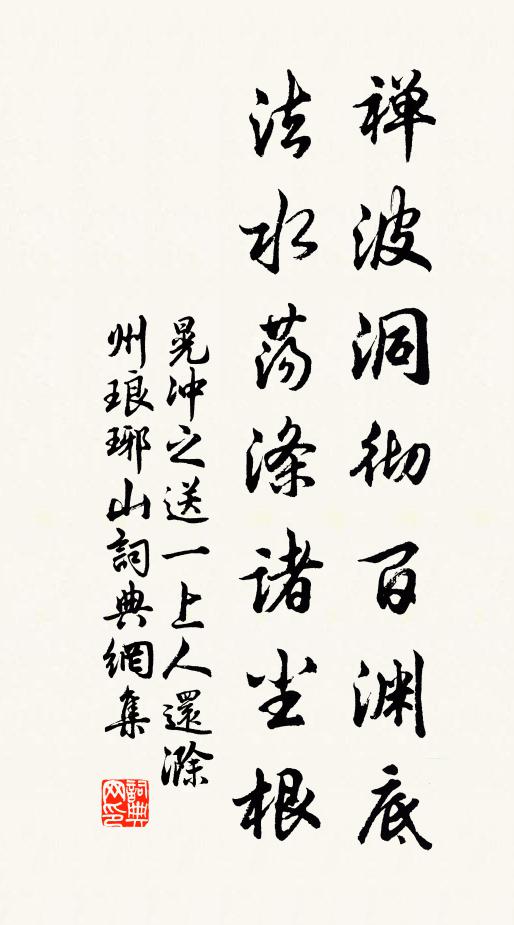 禅波洞彻百渊底
法水荡涤诸尘根
晃冲之送一上人還滁
州琅琊山詞典網集
詞典网印